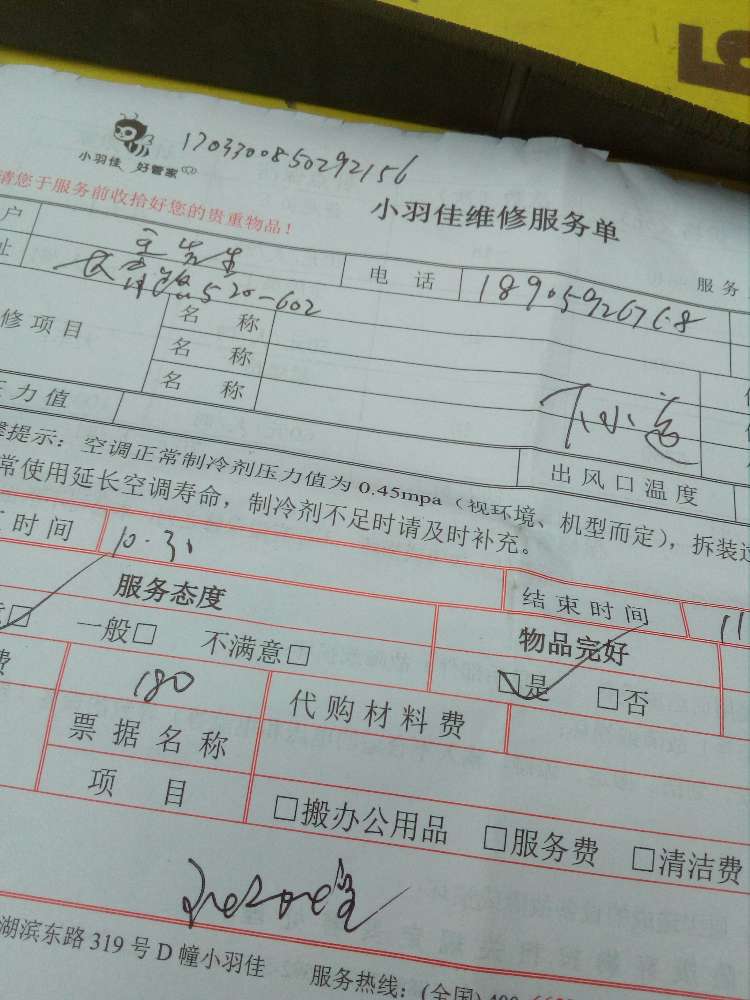 小羽佳 好管家
170330085029 2156
小羽佳维修服务单
请您于服务前收拾好您的贵重物品！
户
电 话
服务
址
520-602
修项目
名 称
名 称
名 称
压力值
出风口温度
提示：空调正常制冷剂压力值为 0.45mpa（视环境、机型而定），拆装过
常使用延长空调寿命，制冷剂不足时请及时补充。
时间
10.30
结束时间
11
服务态度
物品完好
一般□ 不满意□
□是 □否
费
180
代购材料费
票据名称
项 目
□搬办公用品 □服务费 □清洁费
湖滨东路 319 号 D 幢小羽佳
服务热线：(全国)400